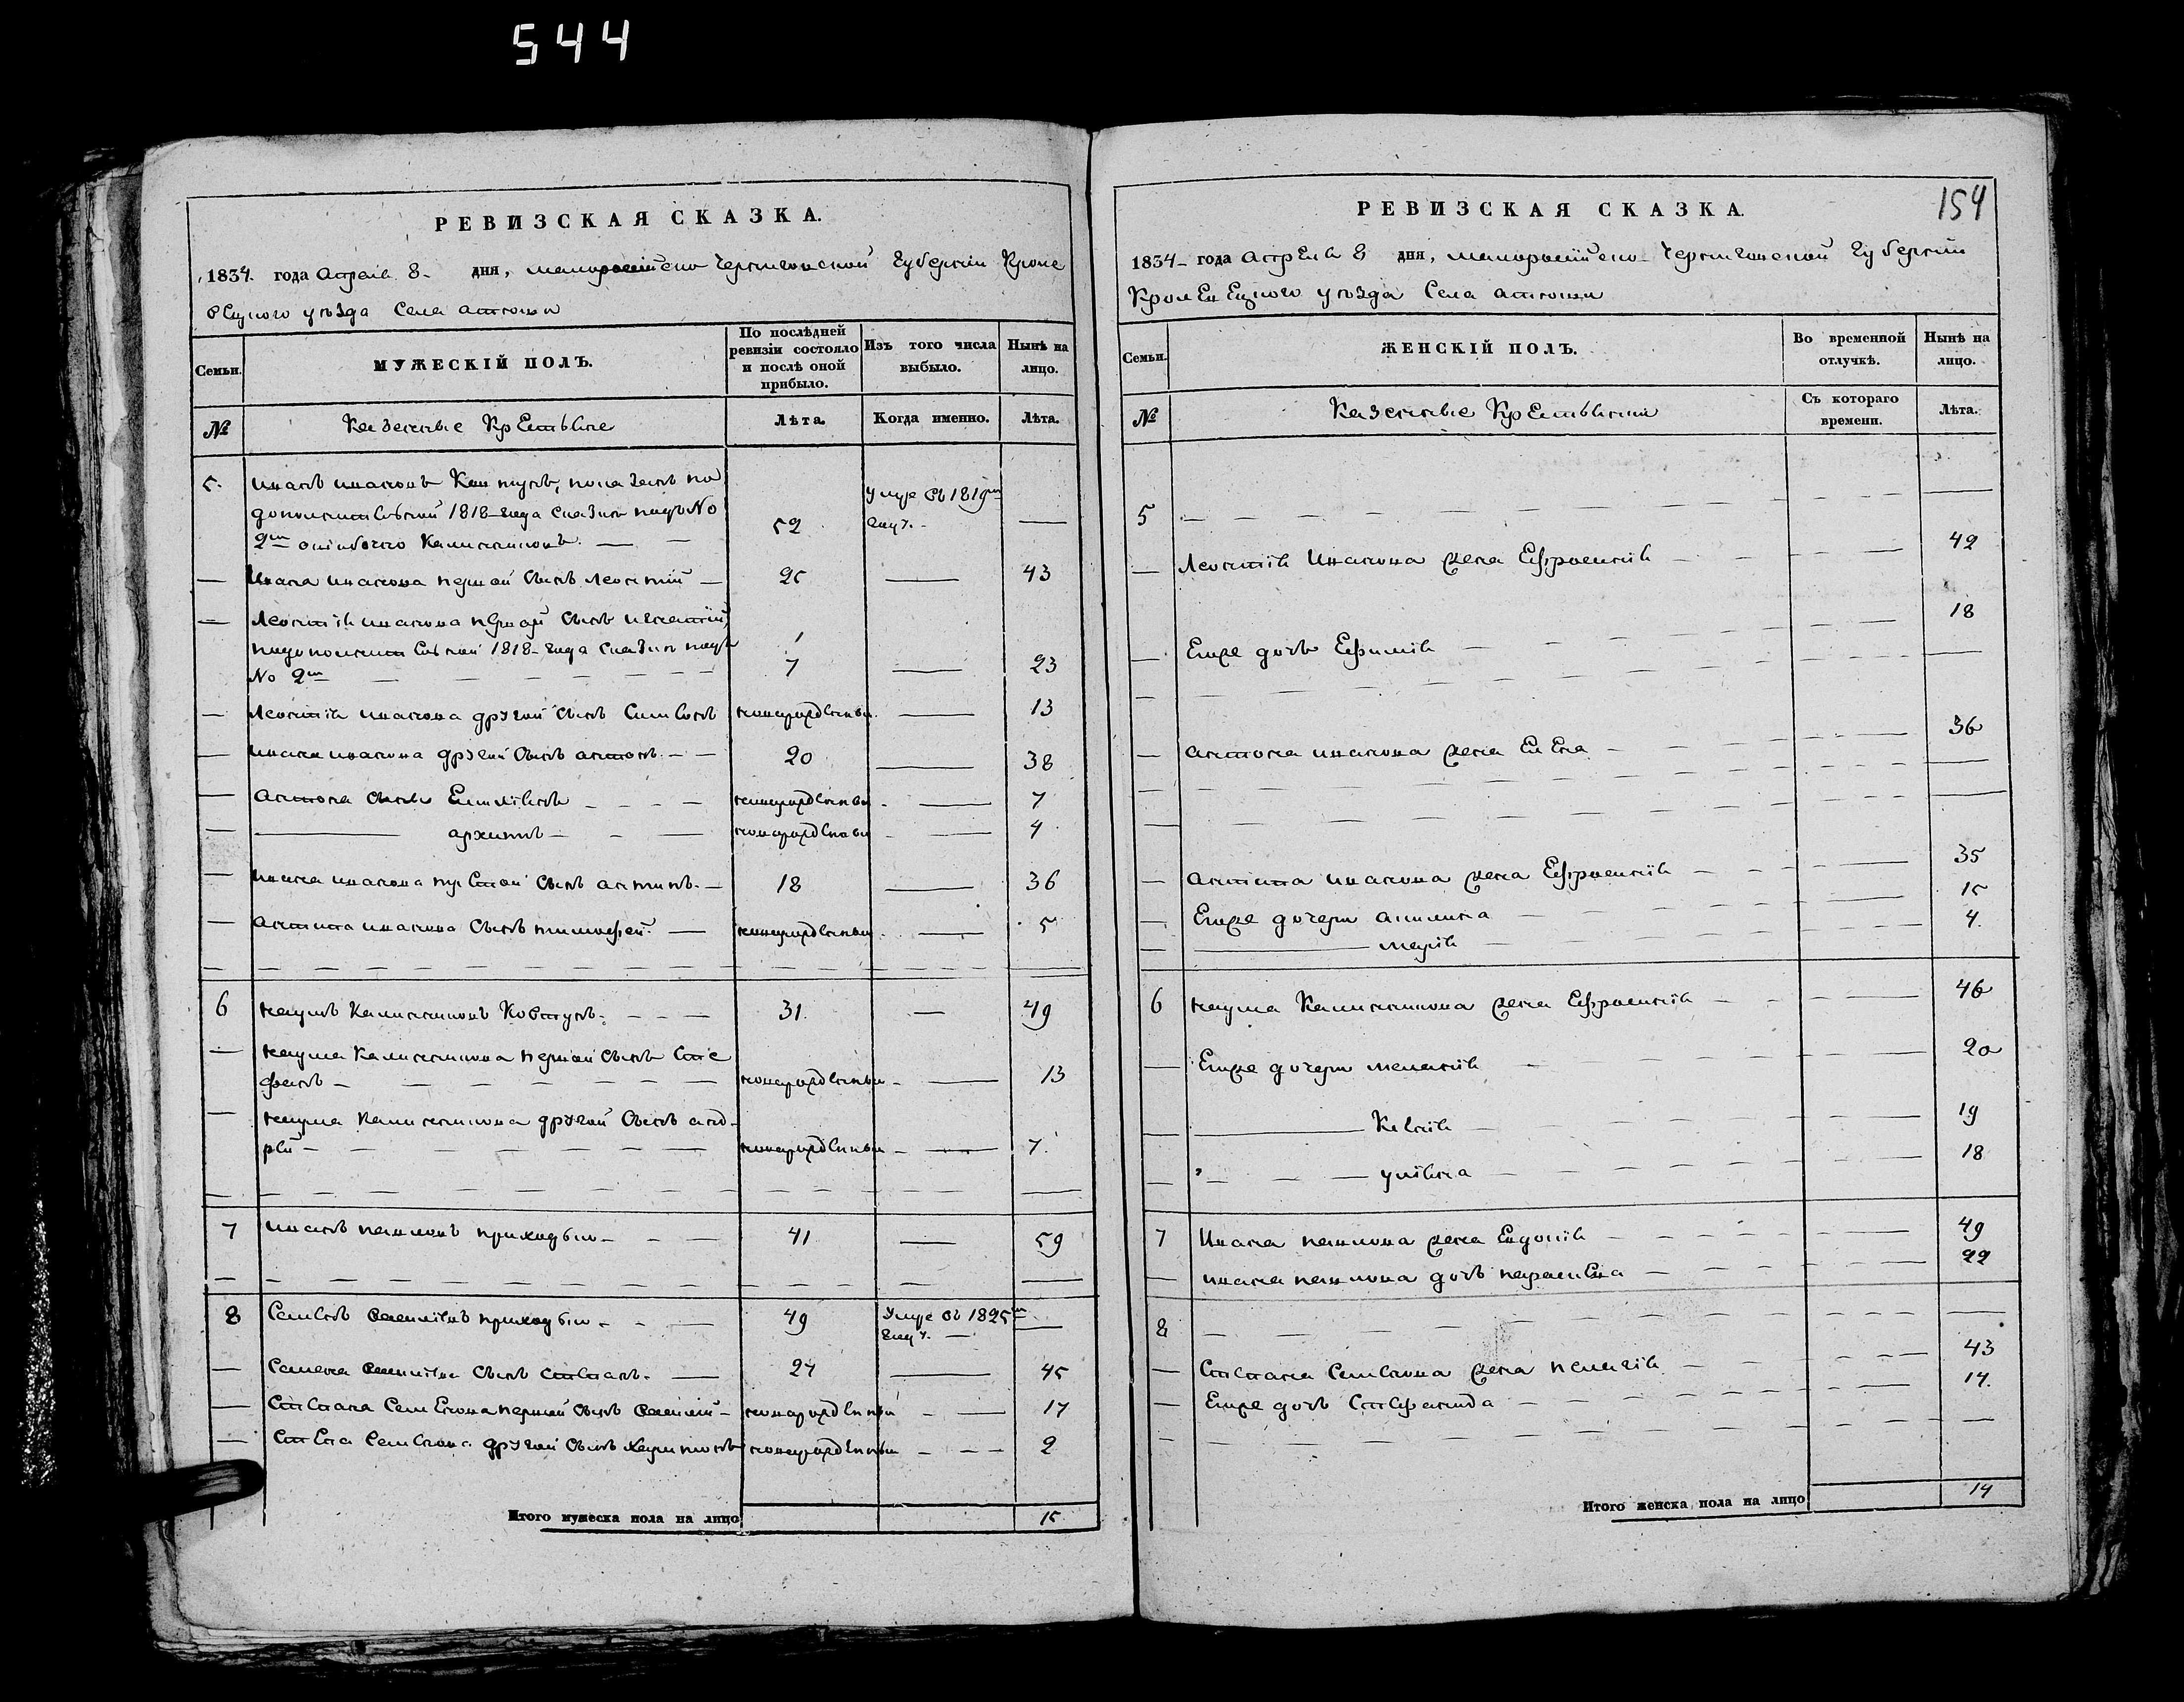 544
РЕВИЗСКАЯ СКАЗКА.
1834. года Апреля 8- дня, малороссийско Черниговской Губернии Кроле
вецкого уезда Села
МУЖЕСКІЙ ПОЛЪ.
Семьи.
По послѣдней ревизіи состояло и послѣ оной прибыло.
Изъ того числа выбыло.
Нынѣ на лицо.
№
Казенные Крестьяне
Лѣта.
Когда именно.
Лѣта.
5. Иванъ Ивановъ показанъ по
дополнителной 1818 года сказки подъ No
2м ошибочно Калиниковъ. 52 Умре въ 1819м году.
Ивана Иванова первой сынъ Леонтий 25 43
Леонтия Иванова первой сынъ Игнатий,
по дополнителной 1818 года сказки подъ
No 2м 7 23
Леонтия Иванова другой сынъ Симеонъ новорожденный 13
Ивана Иванова другой сынъ Антонъ 20 38
Антона сынъ Емилианъ новорожденный 7
архипъ новорожденный 4
Ивана Иванова третой сынъ Антипъ. 18 36
Антипа Иванова сынъ тимофей. новорожденный 5
6 Наумъ Калиниковъ Ковтунъ. 31. 49
Наума Калиникова первой сынъ Сте
фанъ новорожденный 13
Наума Калиникова другой сынъ анд-
рей новорожденный 7.
7 Иванъ павловъ приходько 41 59
8 Семенъ приходько 49 Умре въ 1825м году.
Семена сынъ Степанъ. 27 45
Степана Семенова первой сынъ новорожденный 17
Степа Семенова другой сынъ харитонъ новорожденный 2
Итого мужеска пола на лицо 15
154
РЕВИЗСКАЯ СКАЗКА.
1834- года Апреля 8 дня, малороссийско Черниговской Губернии
Кролевецкого уезда Села
Семьи.
ЖЕНСКІЙ ПОЛЪ.
Во временной отлучкѣ.
Нынѣ на лицо.
№
Казенные Крестьянки
Съ котораго времени.
Лѣта.
5
Леонтия Иванова жена Ефросиния 42
Ешже дочь Ефимия 18
Антона Иванова жена Елена 36
Антипа Иванова жена Ефросиния 35
Ешже дочери Акилина 15
мария 4.
6 Наума Калиникова жена Ефросиния 46
Ешже дочери мелания 20
Ксения 19
улияна 18
7 Ивана павлова жена Евдокия 49
Ивана павлова дочь параскева 22
8
Степана Семенова жена пелагия 43
Ешже дочь Стефанида 14.
Итого женска пола на лицо 14